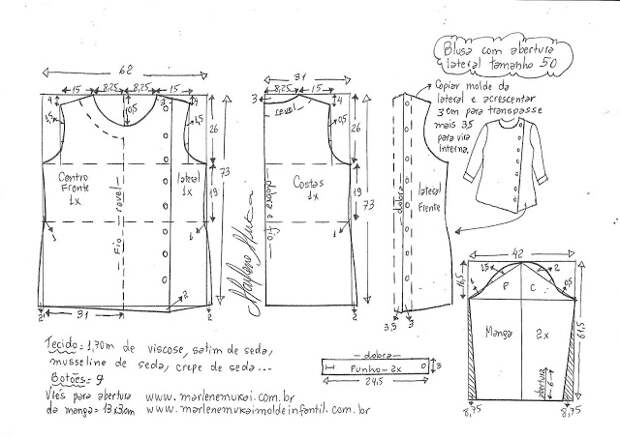 Blusa com abertura
lateral tamanho 50
62
15 8,25 8,25 15
4 4
3,5
10,5
1,5
26
73
19
Centro
Frente
1x
lateral
1x
Fio revel
31
2 2 2
31
3
4
revel
0,5
26
73
19
Costas
1x
dobra e fio
2
Marlene Mukai
Copiar molde da
lateral e acrescentar
3cm para transpasse
mais 3,5
para vira
interna.
dobra
lateral
Frente
3,5 3
42
16,5
1,5
2
P C
61,5
Manga 2x
abertura
6
8,75 8,75
dobra
Punho - 2x
3
24,5
Tecido = 1,70m de viscose, satim de seda,
musseline de seda, crepe de seda...
Botões = 9
Viés para abertura www.marlenemukai.com.br
da manga = 13x3cm www.marlenemukaimoldeinfantil.com.br